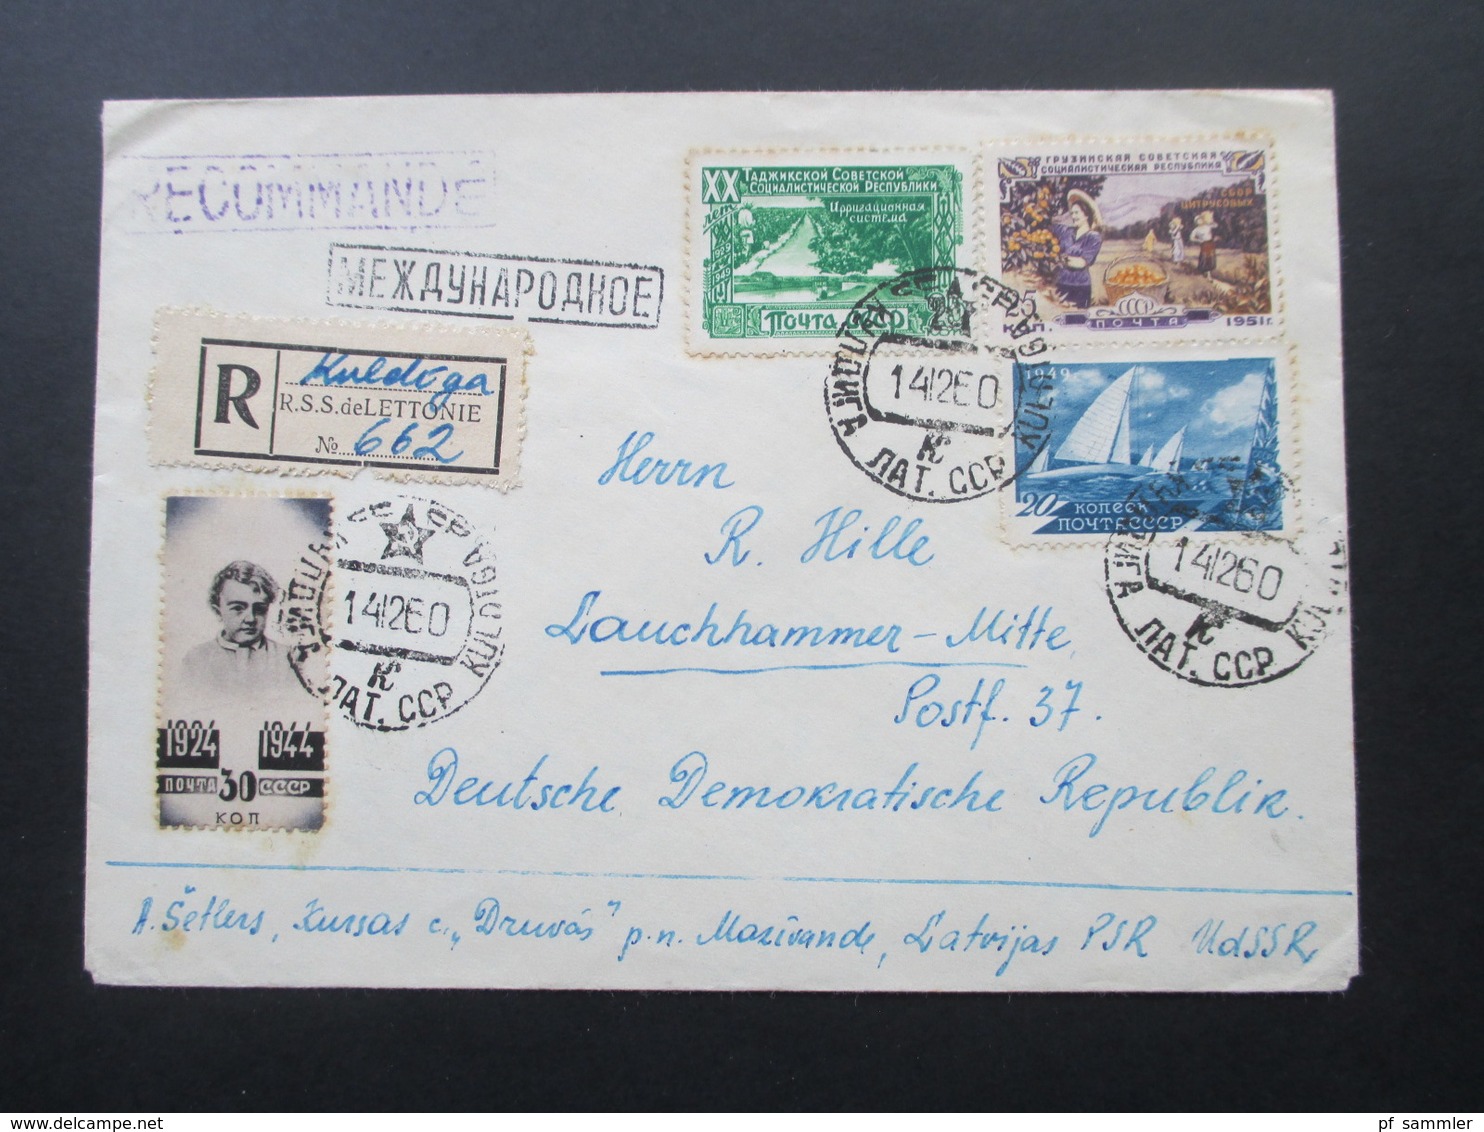 RECOMMANDÉ
МЕЖДУНАРОДНОЕ
R
Kuldīga
R.S.S. de LETTONIE
№ 662
XX лет
Таджикской Советской
Социалистической Республики
Ирригационная
система
1929
1949
Почта СССР
ГРУЗИНСКАЯ СОВЕТСКАЯ
СОЦИАЛИСТИЧЕСКАЯ РЕСПУБЛИКА
СБОР
ЦИТРУСОВЫХ
25
КОП.
СССР
ПОЧТА
1951г.
1949
20 КОПЕЕК
ПОЧТА СССР
14 12 60
К
ЛАТ. ССР KULDIGA
14 12 60
К
ЛАТ. ССР
14 12 60
К
ЛАТ. ССР KULDIGA
1924 1944
ПОЧТА 30 СССР
КОП
Herrn
R. Hille
Lauchhammer-Mitte,
Postf. 37.
Deutsche Demokratische Republik.
A. Šetlers, Kursas c. „Druvās" p.n. Mazīvande, Latvijas PSR UdSSR
pf sammler